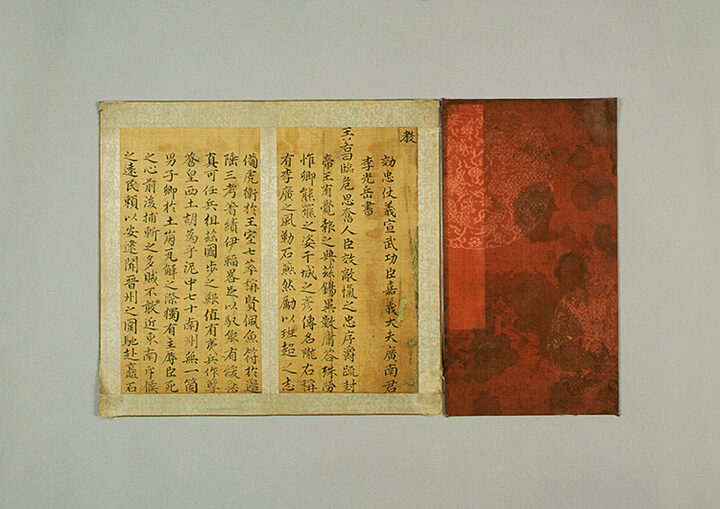 教
効忠仗義宣武功臣嘉義大夫廣南君
李光岳書
王若曰臨危思奮人臣效敵愾之忠序爵疏封
帝王有覺報之典玆錫異數庸答殊勞
惟卿熊羆之姿干城之彥傳名隴右稱
有李廣之風勒石燕然勵以班超之志
備虎衛於王室七萃稱賢佩魚符於邊
陲三考著績伊韜畧足以馭衆有緩急
眞可任兵徂玆國步之艱値有事兵作孼
蒼皇西土胡爲乎泥中七十南州無一箇
男子卿於土崩瓦解之際獨有主辱臣死
之心前後捕斬之多賊不敢近東南斥候
之遠民賴以安遠聞晋州之圍馳赴矗石